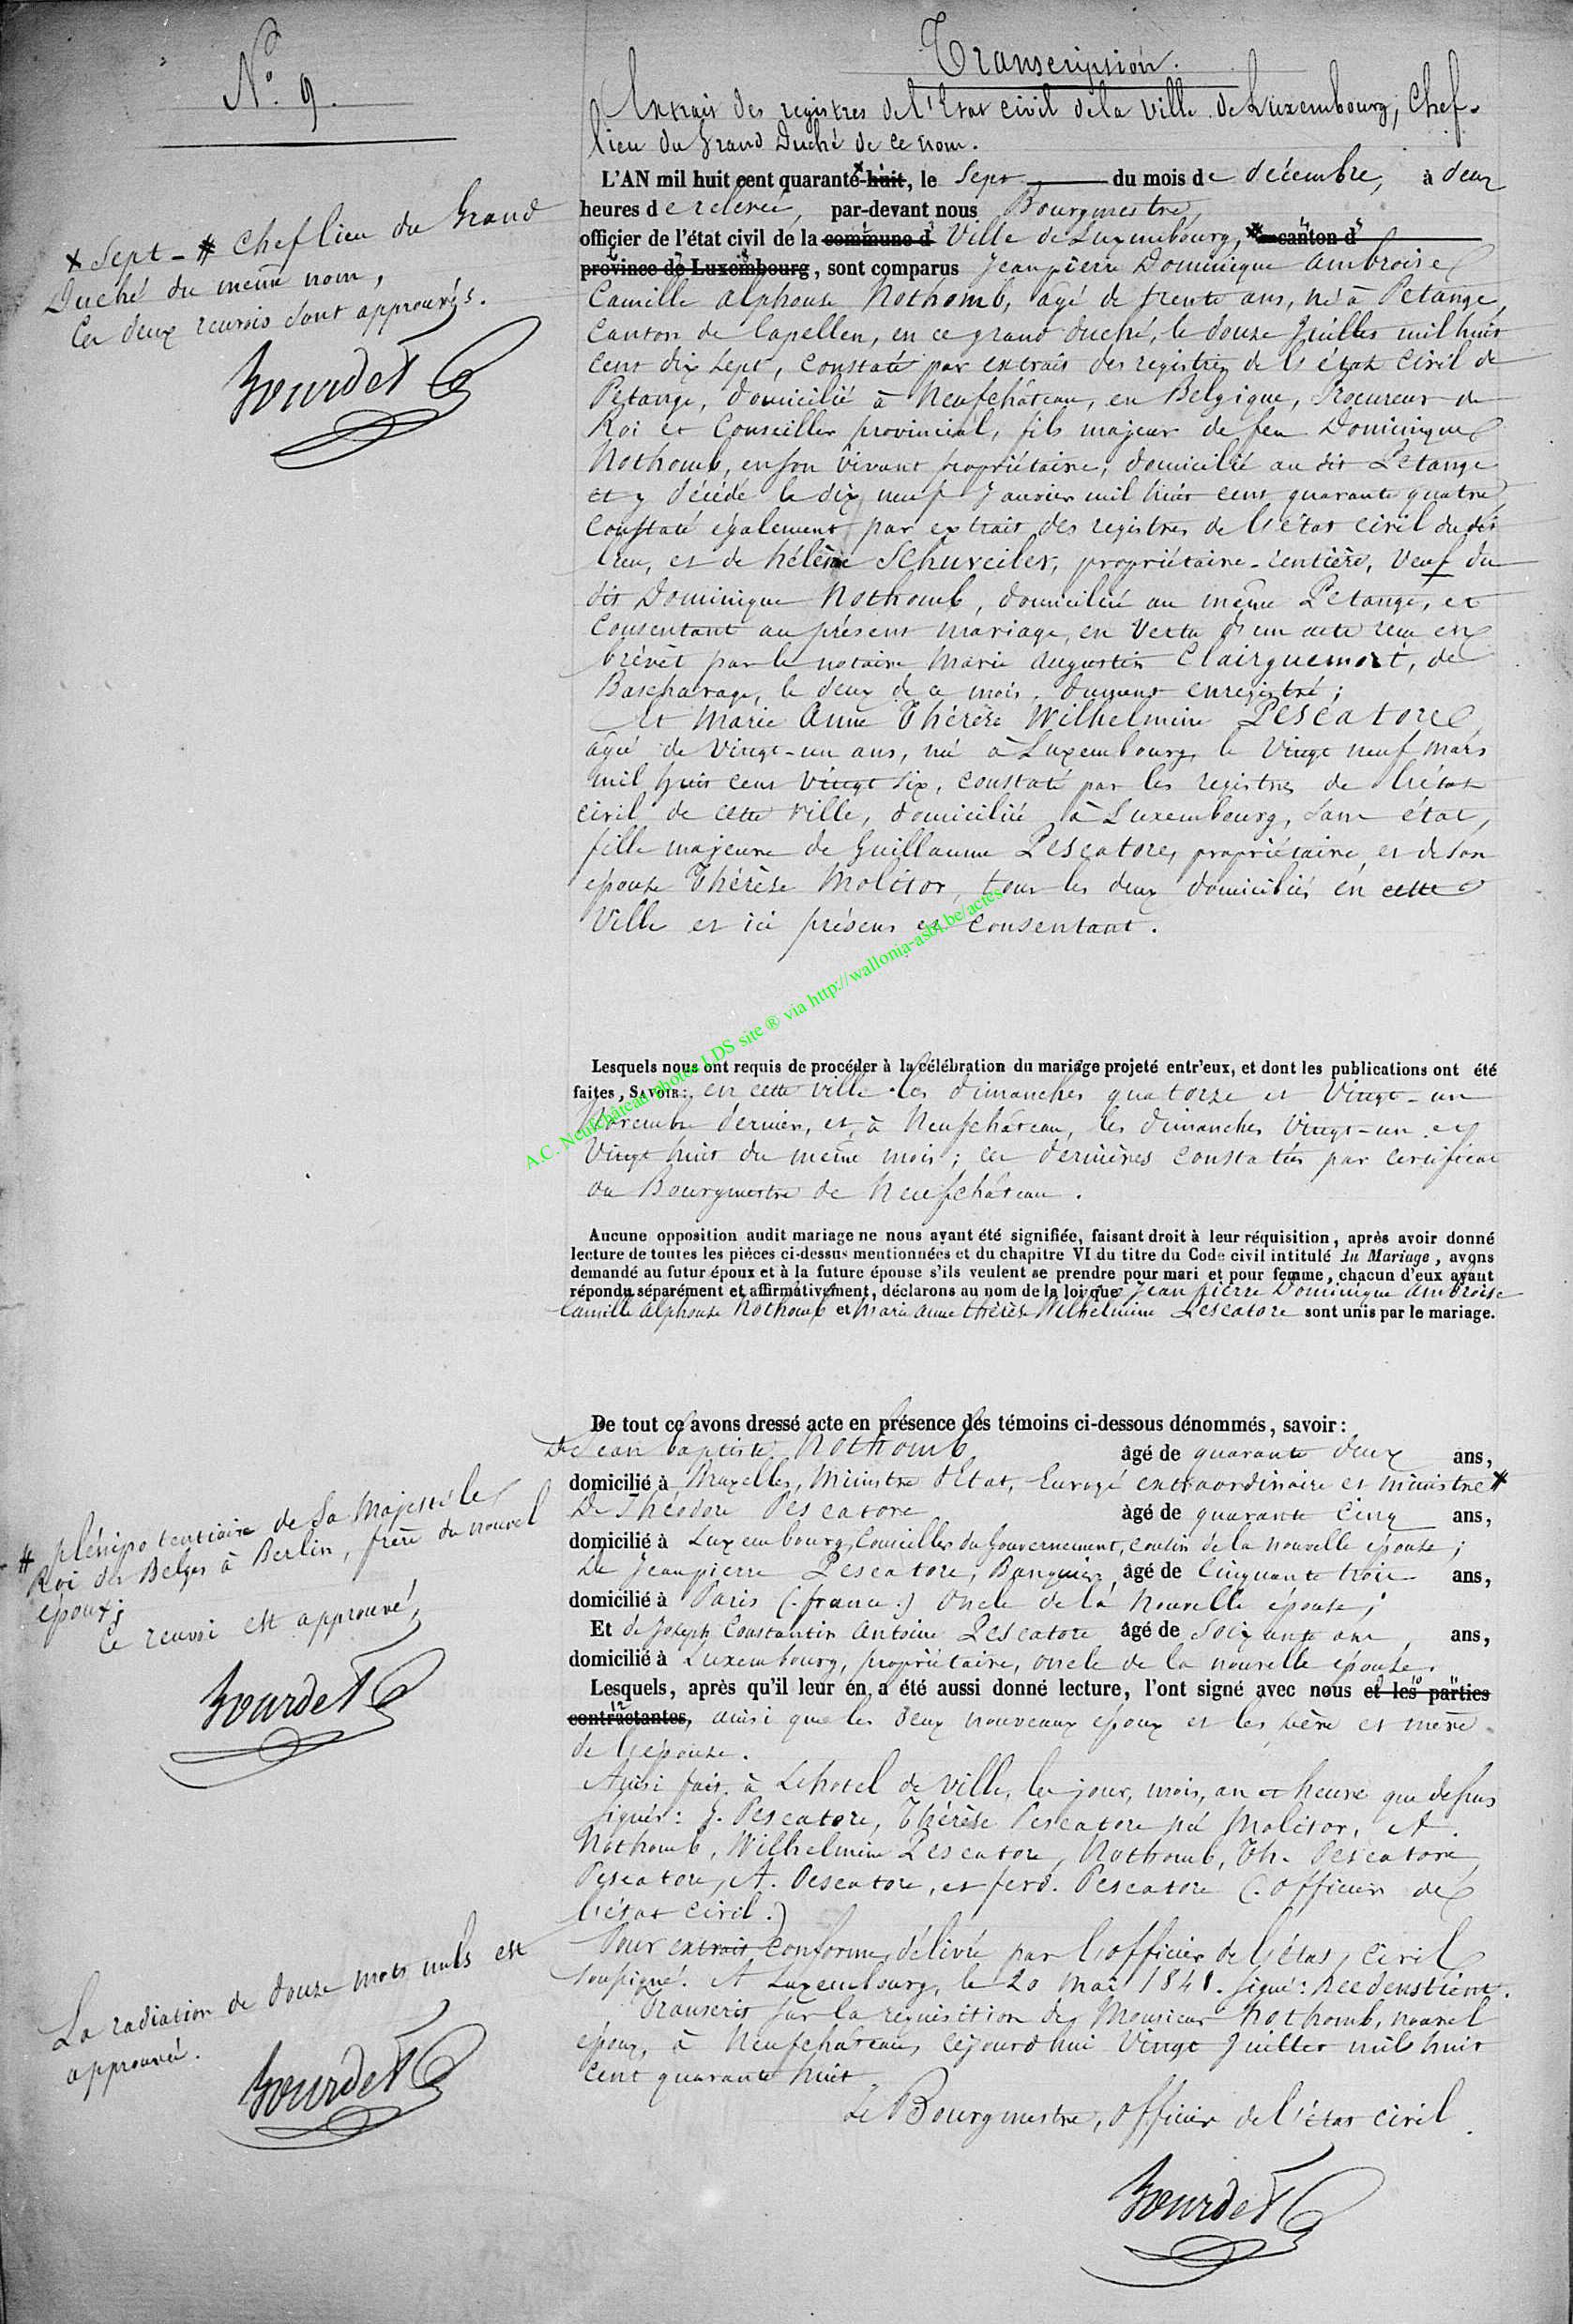 N.° 9.
Transcription.
Extrait des registres de l'Etat civil de la ville de Luxembourg, Chef-
lieu du Grand Duché de ce nom.
L'AN mil huit cent quarante-huit, le Sept du mois de décembre, à deux
heures de relevée, par-devant nous Bourgmestre,
officier de l'état civil de la commune d Ville de Luxembourg, # canton d
province de Luxembourg, sont comparus Jean pierre Dominique Ambroise
Camille Alphonse Nothomb, âgé de trente ans, né à Petange,
Canton de Capellen, en ce grand duché, le douze Juillet mil huit
cent dix sept, constaté par extrait des registres de l'état civil de
Petange, domicilié à Neufchâteau, en Belgique, Procureur du
Roi et Conseiller provincial, fils majeur de feu Dominique
Nothomb, en son vivant propriétaire, domicilié au dit Petange
et y décédé le dix neuf Janvier mil huit cent quarante quatre,
constaté egalement par extrait des registres de l'état civil du dit
lieu, et de hélène Schuveiler, propriétaire-rentière, veuf du
dit Dominique Nothomb, domiciliée au même Petange, et
Consentant au présent mariage, en vertu d'un acte recu en
brévêt par le notaire Marie Augustin Clairquemort, de
Bascharage, le deux de ce mois, dument enregistré;
Et Marie Anne Thérèse Wilhelmine Pescatore
âgée de vingt-un ans, née à Luxembourg le vingt neuf mars
mil huit cent vingt six, constaté par les registres de l'état
civil de cette ville, domiciliée à Luxembourg, sans état,
fille majeure de Guillaume Pescatore, propriétaire et de son
épouse Thérèse Molitor, tous les deux domiciliés en cette
Ville et ici présens et consentant.
Lesquels nous ont requis de procéder à la célébration du mariage projeté entr'eux, et dont les publications ont été
faites, SAVOIR: en cette ville les dimanches quatorze et Vingt-un
Novembre dernier, et à Neufchâteau, les dimanches vingt-un et
Vingt huit du même mois; ces dernières constatées par certificat
du Bourgmestre de Neufchâteau.
Aucune opposition audit mariage ne nous ayant été signifiée, faisant droit à leur réquisition, après avoir donné
lecture de toutes les pièces ci-dessus mentionnées et du chapitre VI du titre du Code civil intitulé du Mariage, avons
demandé au futur époux et à la future épouse s'ils veulent se prendre pour mari et pour femme, chacun d'eux ayant
répondu séparément et affirmativement, déclarons au nom de la loi que Jean pierre Dominique Ambroise
Camille Alphonse Nothomb et Marie Anne Thérèse Wilhelmine Pescatore sont unis par le mariage.
De tout ce avons dressé acte en présence des témoins ci-dessous dénommés, savoir:
De Jean baptiste Nothomb âgé de quarante deux ans,
domicilié à Bruxelles, Ministre d'Etat, Envoyé extraordinaire et ministre #
De Théodore Pescatore âgé de quarante cinq ans,
domicilié à Luxembourg, Conseiller du Gouvernement, cousin de la nouvelle épouse;
De Jean pierre Pescatore, Banquier, âgé de Cinquante trois ans,
domicilié à Paris (. france .) Oncle de la nouvelle épouse;
Et de Joseph Constantin Antoine Pescatore âgé de Soixante ans, ans,
domicilié à Luxembourg, propriétaire, oncle de la nouvelle épouse.
Lesquels, après qu'il leur en a été aussi donné lecture, l'ont signé avec nous et les parties
contractantes, ainsi que les deux nouveaux époux et les père et mère
de l'épouse.
Ainsi fait à Lhotel de ville, les jour, mois, an et heure que dessus
Signés: G. Pescatore, Thérèse Pescatore né Molitor, A.
Nothomb, Wilhelmine Pescatore, Nothomb, Th. Pescatore,
Pescatore, A. Pescatore, et ferd. Pescatore (. officier de
l'état civil .)
Pour extrait conforme, délivré par l'officier de l'état civil
soussigné. A Luxembourg, le 20 mai 1848. Signé:
Transcrit sur la requisition de Monsieur Nothomb, nouvel
époux, à Neufchateau, cejourd'hui Vingt Juillet mil huit
cent quarante huit.
Le Bourgmestre, officier de l'état civil.
Bourdet
x Sept - # Chef lieu du Grand
Duché du même nom,
Ces deux renvois sont approuvés.
Bourdet
# plénipotentiaire de Sa Majesté le
Roi des Belges à Berlin, frère du nouvel
époux;
Ce renvoi est approuvé,
Bourdet
La radiation de douze mots nuls est
approuvée.
Bourdet
A.C. Neufchâteau photos LDS site ® via http://wallonia-asbl.be/actes